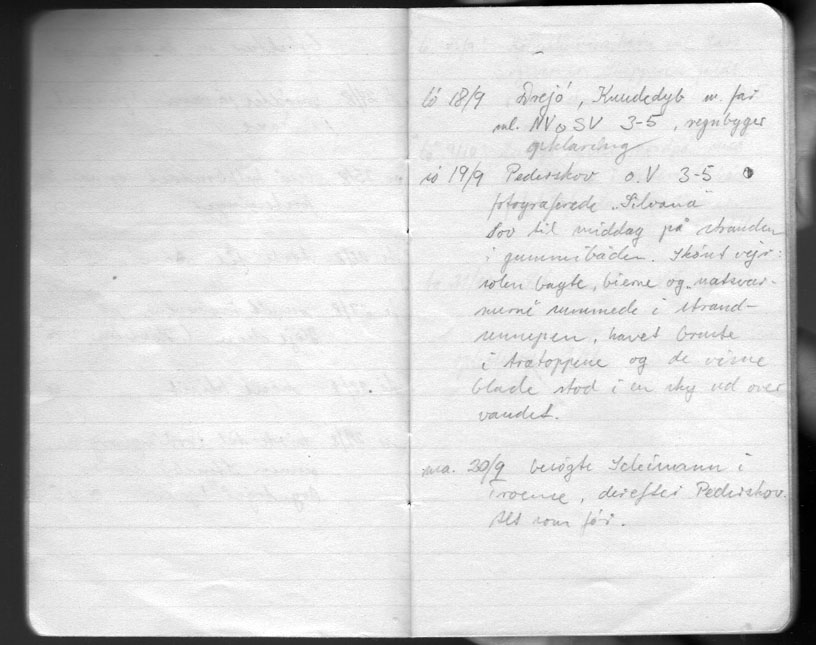 lö 18/9 Drejö, Knudedyb m. far
ml. NV o SV 3-5, regnbyger
opklaring
sö 19/9 Pederskov o. V 3-5
fotograferede "Silvana"
Sov til middag på stranden
i gummibåden. Skönt vejr:
solen bagte, bierne og natsvær-
merne summede i strand-
sennepen, havet bruste
i trætoppene og de visne
blade stod i en sky ud over
vandet.
ma. 20/9 besögte Scheimann i
Troense, derefter Pederskov.
Alt som för.